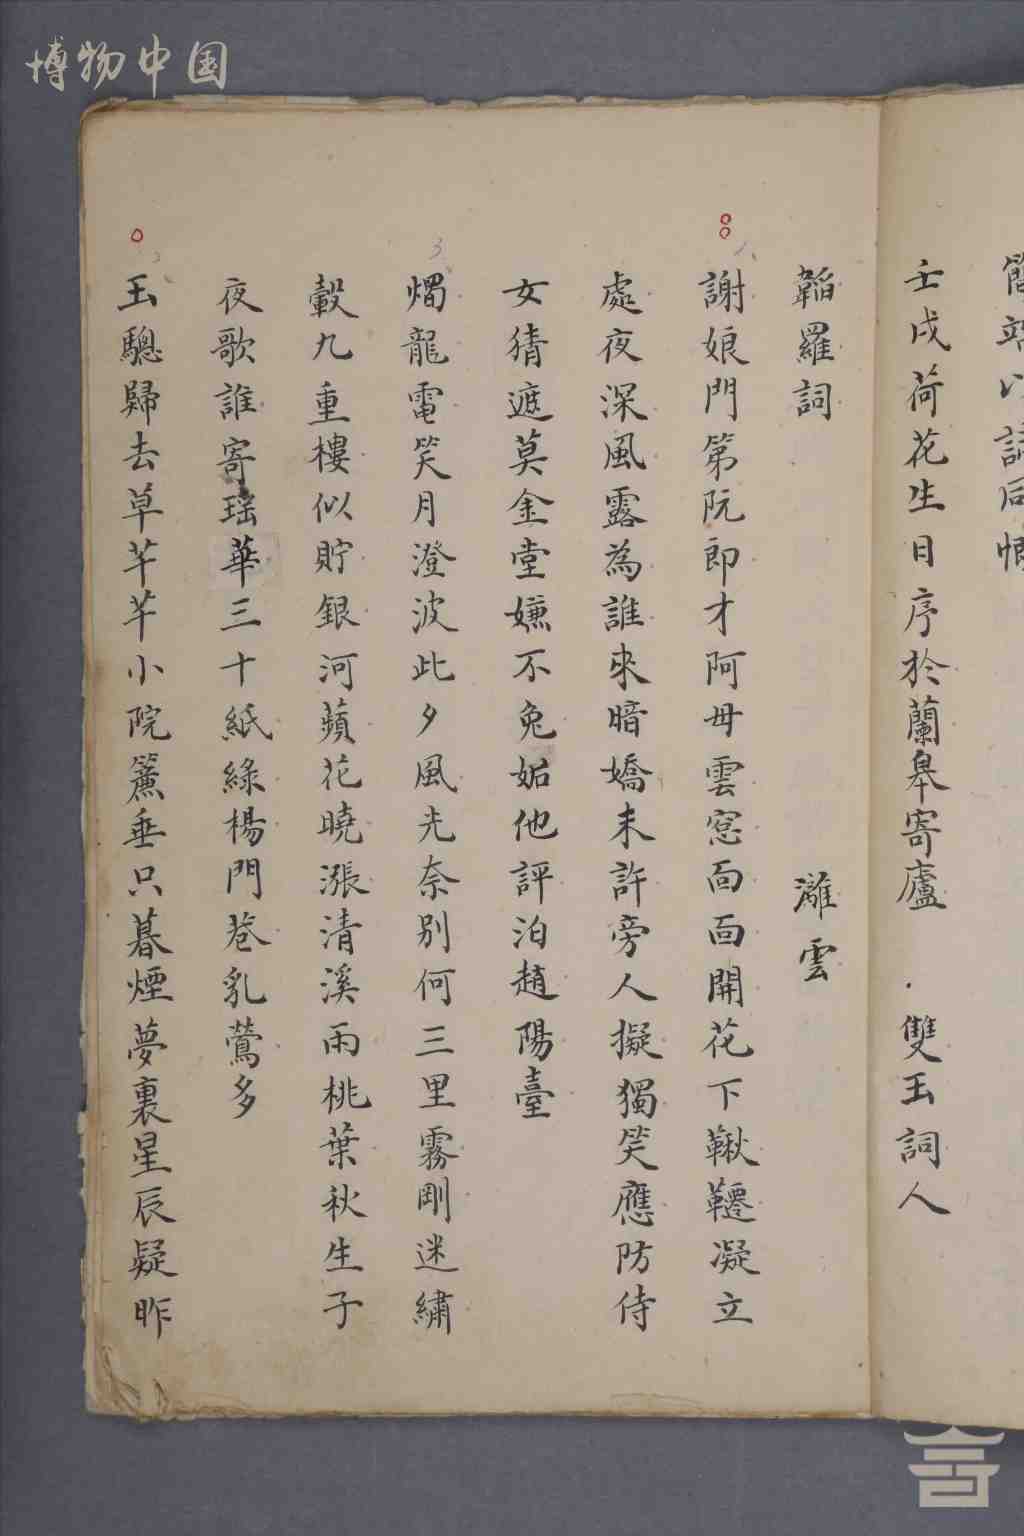 博物中国
壬戌荷花生日序於蘭皋寄廬 雙玉詞人
韜羅詞 灕雲
謝娘門第阮郎才阿母雲窓面面開花下鞦韆凝立
處夜深風露為誰來暗嬌未許旁人擬獨笑應防侍
女猜遮莫金堂嫌不免妬他評泊趙陽臺
燭龍電笑月澄波此夕風光奈別何三里霧剛迷繡
轂九重樓似貯銀河蘋花曉漲清溪雨桃葉秋生子
夜歌誰寄瑶華三十紙綠楊門巷乳鶯多
玉驄歸去草芊芊小院簾垂只暮煙夢裏星辰疑昨